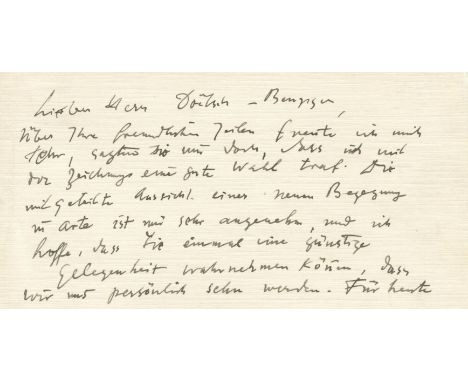 Lieber Herr Doetsch-Benziger,
über Ihre freundlichen Zeilen freute ich mich
sehr, sagten Sie mir doch, dass ich mit
der Zeichnung eine gute Wahl traf. Die
mitgeteilte Aussicht einer neuen Begegnung
in ist mir sehr angenehm, und ich
hoffe, dass Sie einmal eine günstige
Gelegenheit wahrnehmen können, dass
wir uns persönlich sehn werden. Für heute